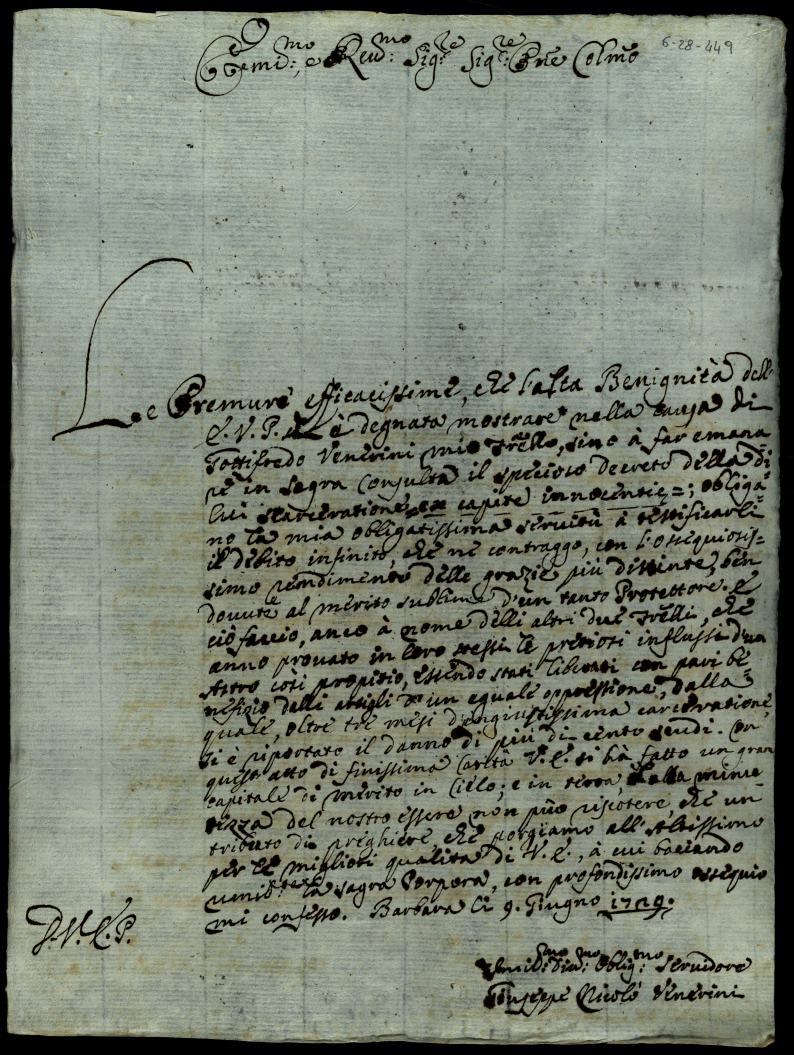 6-28-449
Emi.mo, e Reu.mo Sig.re Sig.re Pne Colmo
Le Premure efficacissime, che l'alta Benignità dell'
E. V. P. si è degnata mostrare nella causa di
Gottifredo Venerini mio frello, sino à far emana-
re in Sagra Consulta il specioso decreto della di
lui scarceratione ex capite innocentiæ; obliga-
no la mia obligatissima seruitù à testificarli
il debito infinito, che ne contraggo, con l'ossequiosis-
simo rendimento delle grazie più distinte, ben
douute al merito sublime d'un tanto Protettore. E
ciò faccio, anco à nome delli altri due frelli, che
anno prouato in loro stessi le pretiosi influssi d'un
Astro così propitio, essendo stati liberati con pari be-
nefizio dalli artigli d'un eguale oppressione, dalla
quale, oltre tre mesi d'ingiustissima carceratione,
si è riportato il danno di più di cento scudi. Con
quest'atto di finissima carità V. E. si hà fatto un gran
capitale di merito in Cielo; e in terra, dalla minu-
tezza del nostro essere non può riscotere, che un
tributo di preghiere, che porgiamo all'Altissimo
per le migliori qualità di V. E., à cui baciando
umilm.te la Sagra Porpora, con profondissimo ossequio
mi confesso. Barbara li 9. Giugno 1729.
D. V. E. P.
Vmil.mo Diu.mo Oblig.mo Seruidore
Giuseppe Nicolò Venerini